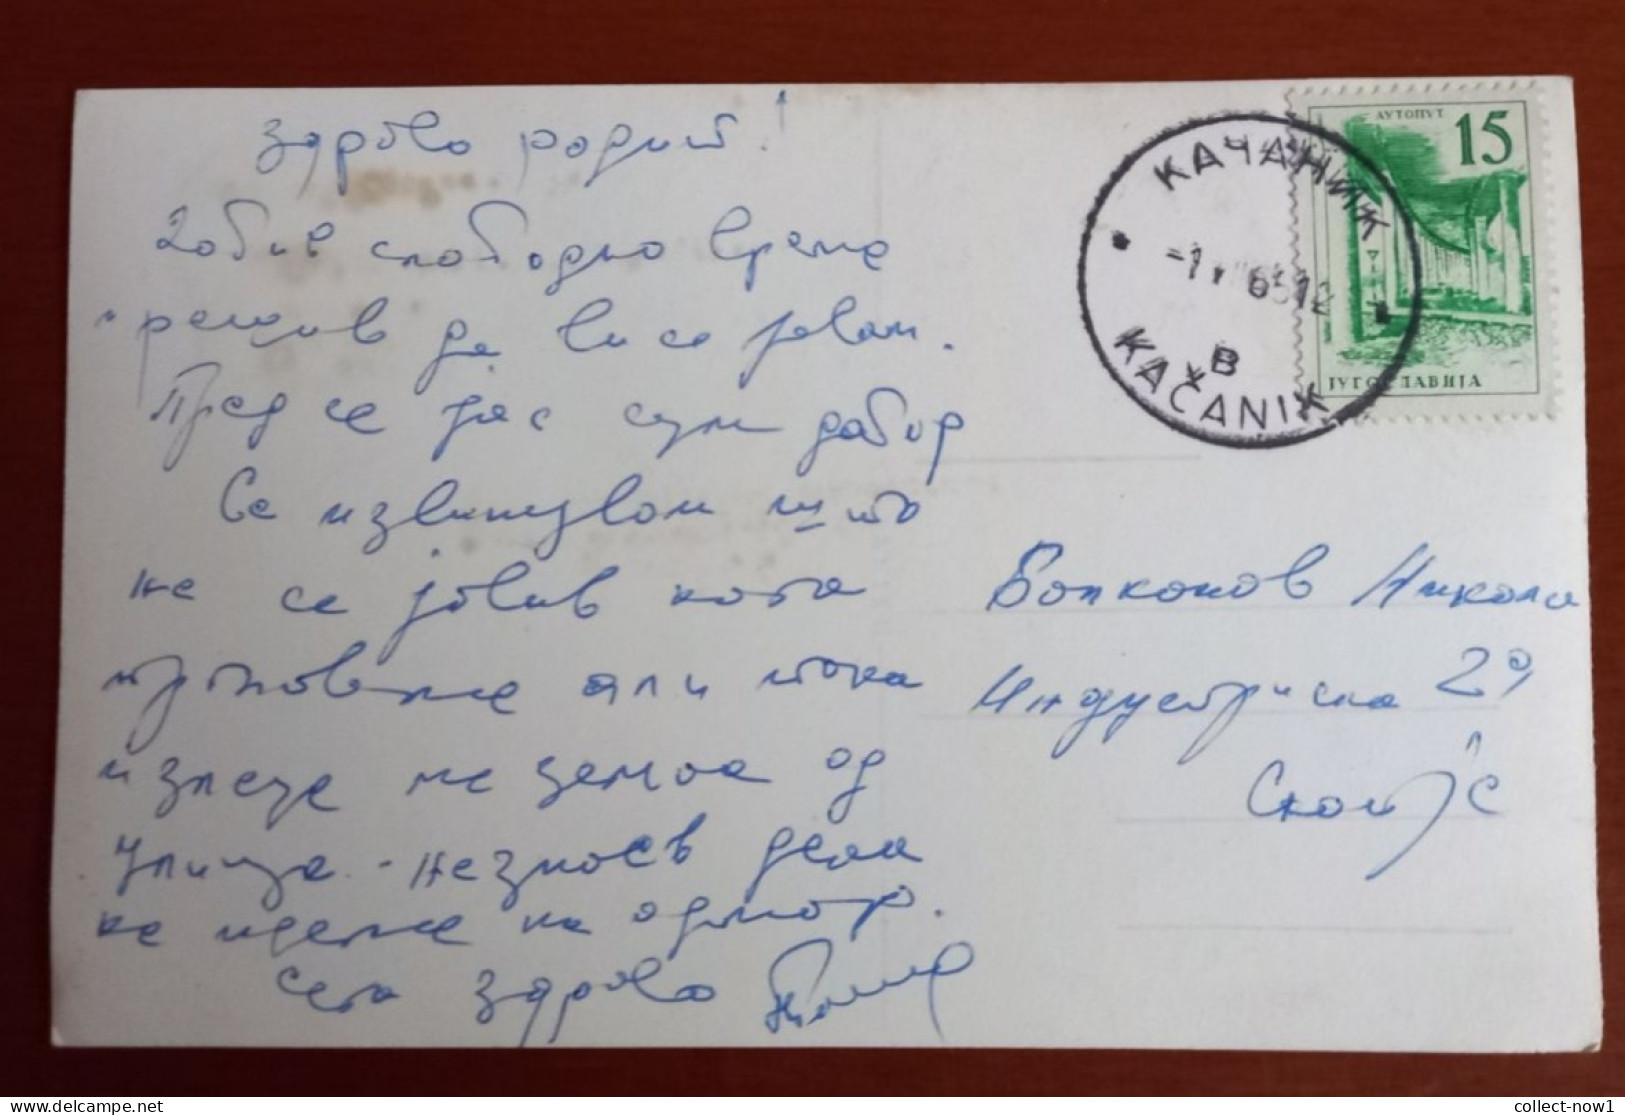 Здраво родит.!
Добив слободно време
решив да ви се јавам.
Пред се јас сум добар
Се извинувам што
не се јавив кога
али тока
излезе на земја од
улица. Незнаев дека
ке идеме на одмор.
Сега здраво
КАЧАНИК
KAČANIK
АУТОПУТ 15
ЈУГОСЛАВИЈА
Никола
Индустриска 29
Скопје
collect-now1